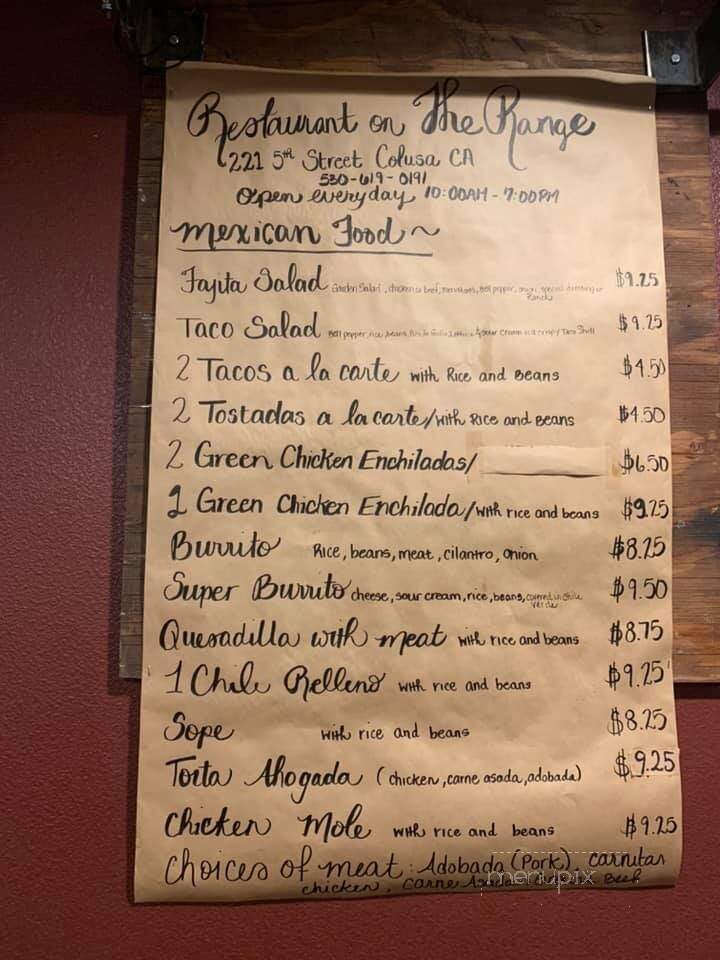 Restaurant on The Range
221 5th Street Colusa CA
530-619-0191
Open everyday 10:00AM - 7:00PM
Mexican Food ~
Fajita Salad Garden Salad, chicken or beef, Bell pepper, onion, special dressing or Ranch $9.25
Taco Salad Bell pepper, rice, beans, Sour Cream in a crispy Taco Shell $9.25
2 Tacos a la carte with Rice and Beans $4.50
2 Tostadas a la carte/with Rice and Beans $4.50
2 Green Chicken Enchiladas/ $6.50
1 Green Chicken Enchilada/with rice and beans $9.25
Burrito Rice, beans, meat, cilantro, onion $8.25
Super Burrito cheese, sour cream, rice, beans, covered in Chile Verde $9.50
Quesadilla with meat with rice and beans $8.75
1 Chile Relleno with rice and beans $9.25
Sope with rice and beans $8.25
Torta Ahogada (chicken, carne asada, adobada) $9.25
Chicken Mole with rice and beans $9.25
Choices of meat: Adobada (Pork), carnitas
chicken, Carne Asada Beef
menupix